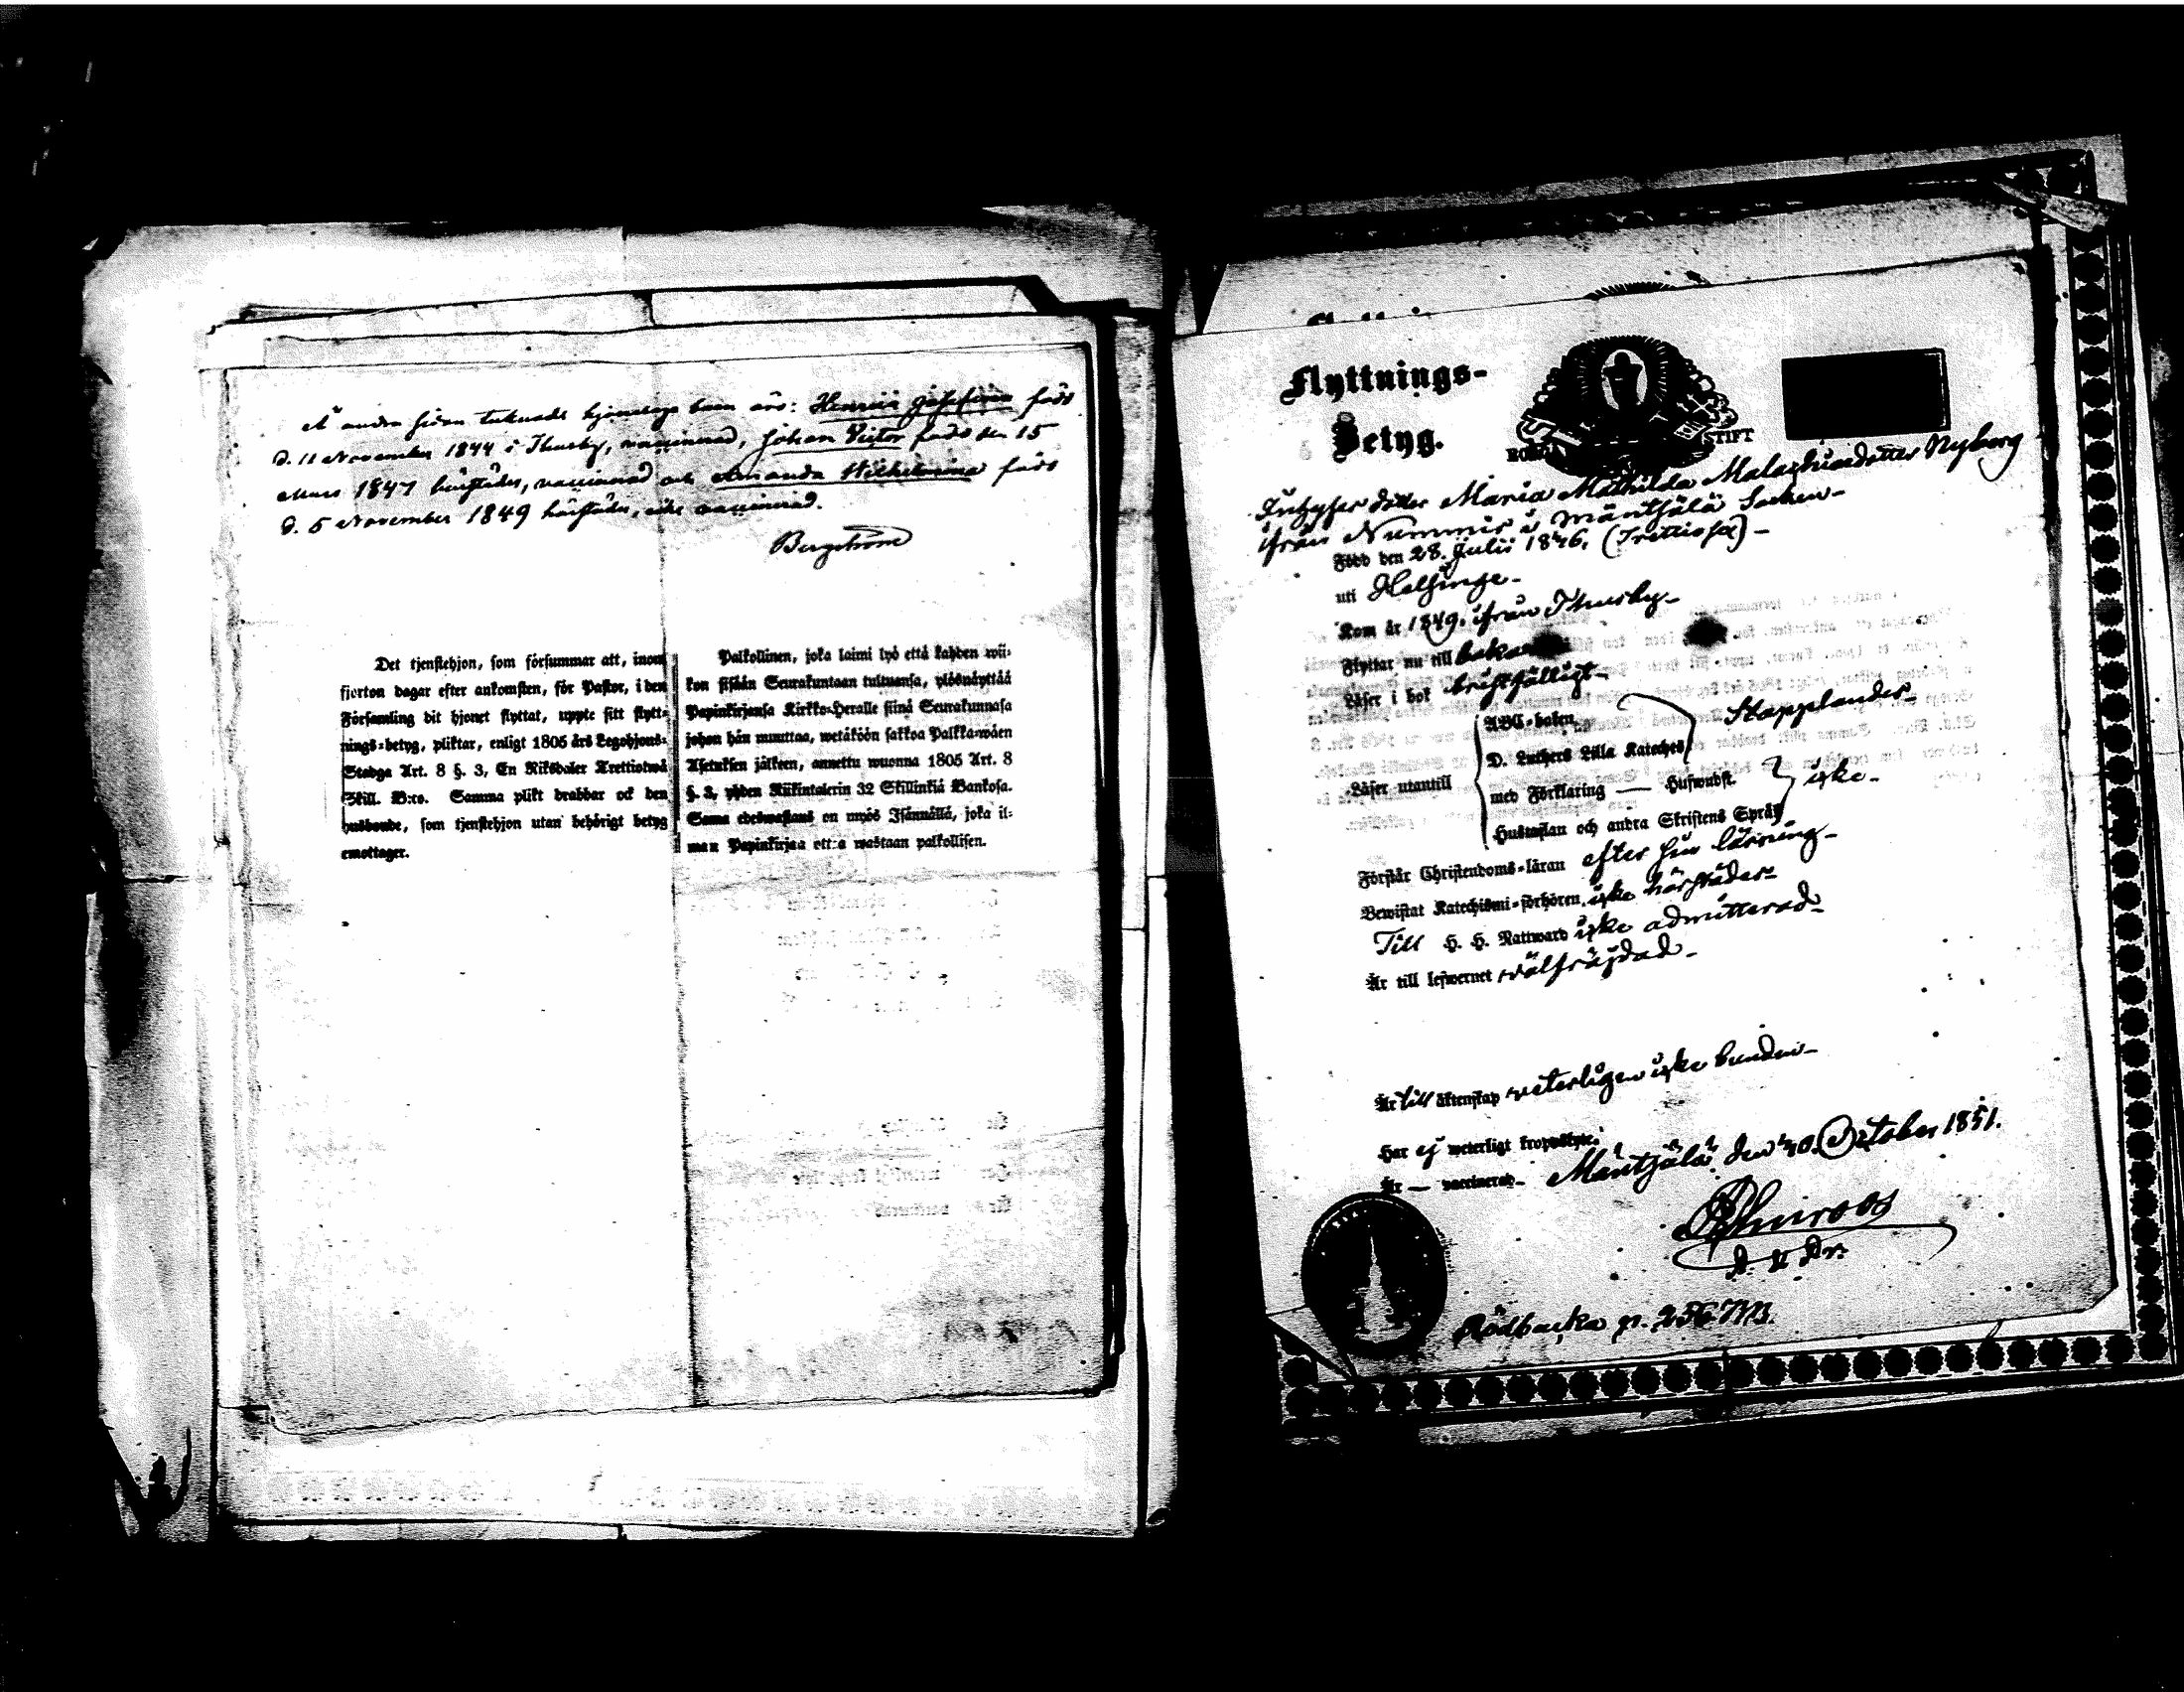 Å andra sidan tecknade hjonelags barn äro: Henrica Josefina född
d. 11 November 1844 i Thusby, vaccinerad, Johan Victor född den 15
Mars 1847 härstädes, vaccinerad och Amanda Wilhelmina född
d. 5 November 1849 härstädes, icke vaccinerad.
Bergström
Det tjenstehjon, som försummar att, inom
fjorton dagar efter ankomsten, för Pastor, i den
Församling dit hjonet flyttat, uppte sitt flytt-
nings-betyg, pliktar, enligt 1805 års Legohjons-
Stadga Art. 8 §. 3, En Riksdaler Trettiotwå
Skill. B:co. Samma plikt drabbar ock den
husbonde, som tjenstehjon utan behörigt betyg
emottager.
Palkollinen, joka laimi lyö että kahden wii-
kon sisään Seurakuntaan tultuansa, ylösnäyttää
Papinkirjansa Kirkko-Heralle siinä Seurakunnasa
johon hän muuttaa, wetäköön sakkoa Palkka-wäen
Asetuksen jälkeen, annettu wuonna 1805 Art. 8
§. 3, yhden Riikintalerin 32 Skillinkiä Bankosa.
Sama edeswastaus on myös Isännällä, joka il-
man Papinkirjaa ottaa wastaan palkollisen.
Flyttnings-
Betyg.
STIFT
Inhyses dotter Maria Mathilda Malachiasdotter Nyborg
ifrån Nummis i Mäntsälä Socken
Född den 28. Julii 1846. (Trettiosex)
uti Helsinge
Kom år 1849. ifrån Thusby
Flyttar nu till
Läser i bok bristfälligt
Läser utantill
ABC-boken
D. Luthers Lilla Kateches
med Förklaring — Hufwudst.
Hustaflan och andra Skriftens Språk
Stapplandes
icke
Förstår Christendoms-läran efter sin lärning
Bewistat Katechismi-förhören icke härstädes
Till H. H. Nattward icke admitterad
Är till lefwernet välfräjdad
Är till äktenskap veterligen icke bunden
Har ej weterligt kroppslyte.
Är — vaccinerad. Mäntsälä den 40. October 1851.
Rödbacka p. 256 MB.